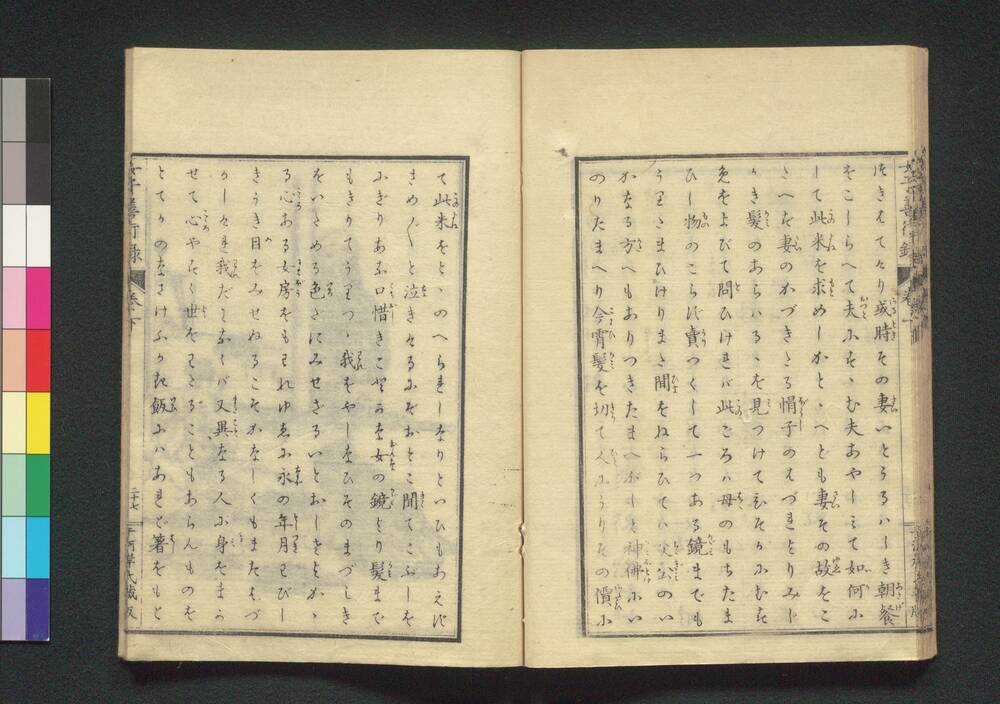 はきはてたり或時その妻いとうるハしき朝餐
をこしらへて夫にそゝむ夫あやしミて如何に
して此米を求めしかとゝへども妻その故をこ
たへず妻のかづきたる帽子のはづれよりみじ
かき髪のあらハるゝを見つけてひそかにむす
めをよびて問ひければ此ごろハ母のもちたま
ひし物のこらず賣つくして一つある鏡までも
うりたまひけりまた聞をねらひてハ父公のい
かなる方へもありつきたまへかしと神佛にい
のりたまへり今宵髪を切て人にうりその價に
て此米をとゝのへられしなりといひもあへず
さめ〴〵と泣きけるにぞおとこ聞てこぶしを
にぎりあな口惜きことかな女の鏡より髪まで
もきりてうりつゝ我をやしなひそのまづしき
をいさめる色だにみせざるいとおしさよとかゝ
る心ある女房をもわれゆゑに永の年月わびし
きうき目をみせぬるこそかなしくもまたはづ
かしけれ我だになくバ又異なる人に身をまか
せて心やすく世をわたることもあらんものを
とてかのなさけふかき飯にハあれど箸をもと
女子善行録
巻下
二十七